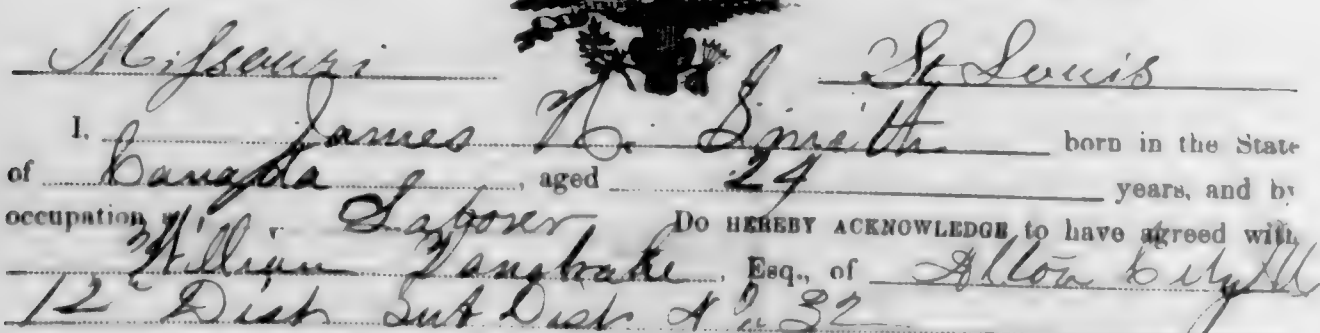 Missouri St Louis
I, James N. Smith born in the State
of Canada, aged 24 years, and by
occupation a Laborer Do HEREBY ACKNOWLEDGE to have agreed with
William Esq., of Alton City Ill
12" Dist Sub Dist No 32